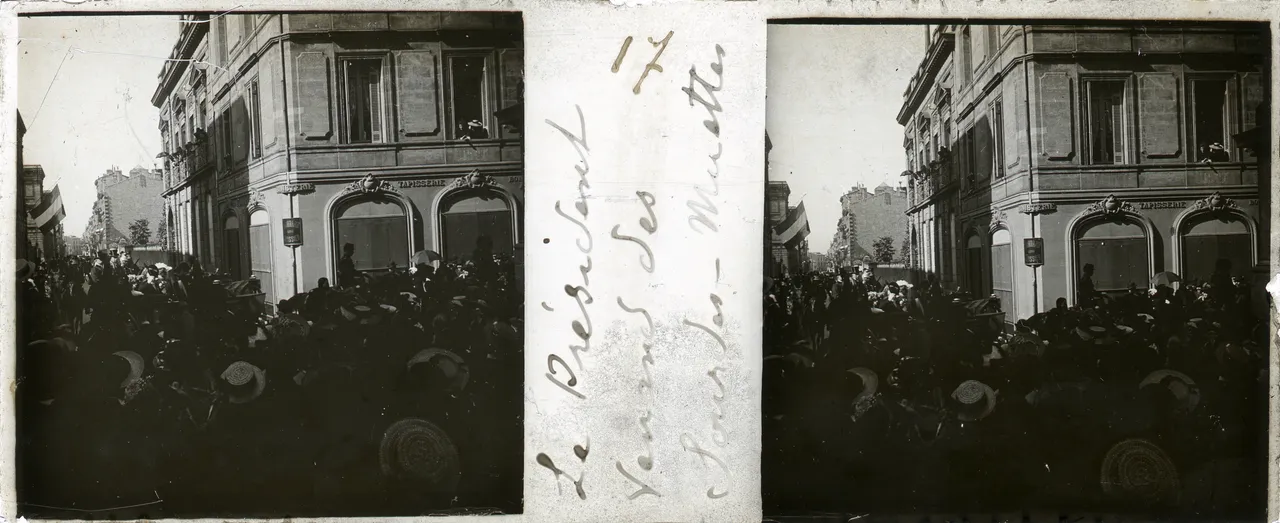 17
Le Président
Venant des
Sourdes-Muettes
TAPISSERIE
TAPISSERIE